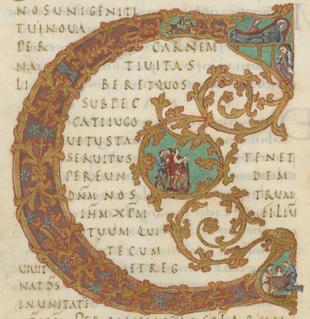 NOS UNIGENITI
TUI NOUA
PER CARNEM
NATIUITAS
LIBERET QUOS
SUB PEC
CATI IUGO
UETUSTA
SERUITUS TENET
PER EUNDEM
DÑM NOSTRUM
IHM XPM FILIŪ
TUUM QUI
TECUM
ET REG
UIUIT
NAT DS
IN UNITATE